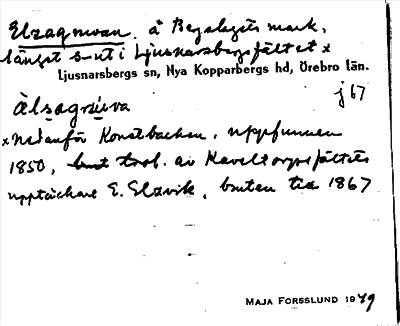 Elzagruvan. å Bergslagets mark,
längst s-ut i Ljusnarsbergsfältet x
Ljusnarsbergs sn, Nya Kopparbergs hd, Örebro län.
j 67
àlsagrùva
x nedanför Konstbacken, uppfunnen
1850, trol. av Kaveltorpsfältets
upptäckare E. Elzvik, bruten till 1867
MAJA FORSSLUND 1949